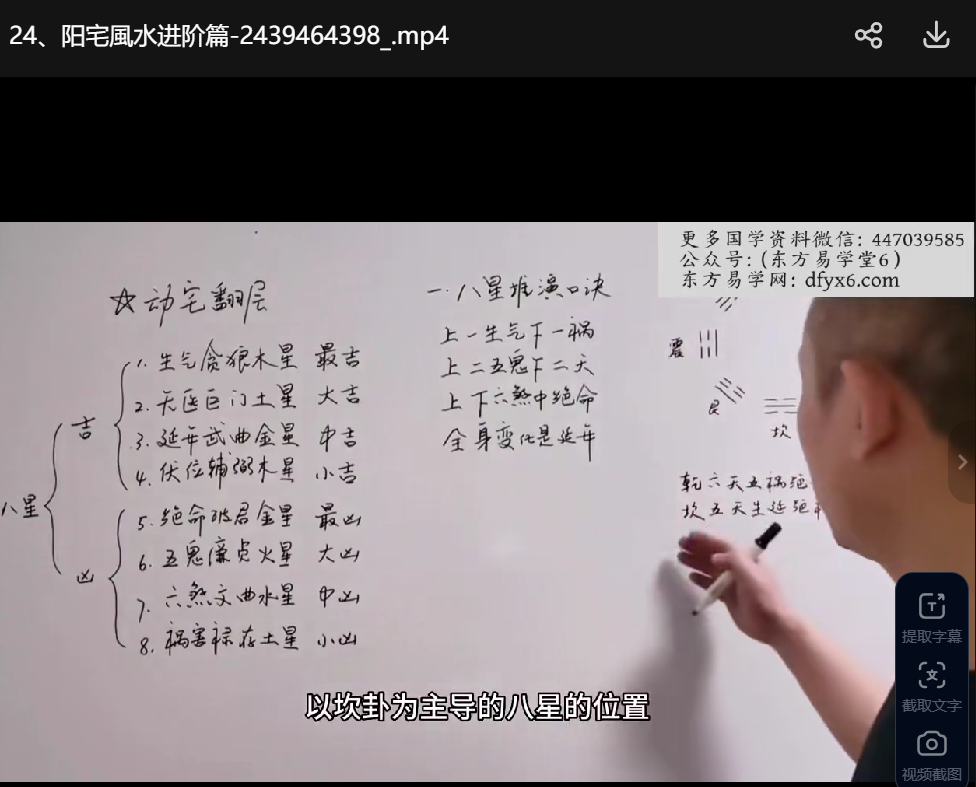 24、阳宅風水进阶篇-2439464398_.mp4
更多国学资料微信: 447039585
公众号:(东方易学堂6)
东方易学网: dfyx6.com
☆动宅翻层
八星
吉
1. 生气贪狼木星 最吉
2. 天医巨门土星 大吉
3. 延年武曲金星 中吉
4. 伏位辅弼木星 小吉
凶
5. 绝命破君金星 最凶
6. 五鬼廉贞火星 大凶
7. 六煞文曲水星 中凶
8. 祸害禄存土星 小凶
一.八星推演口诀
上一生气下一祸
上二五鬼下二天
上下六煞中绝命
全身变化是延年
震
艮
坎
乾六天五祸绝
坎五天生延绝
以坎卦为主导的八星的位置
提取字幕
截取文字
视频截图